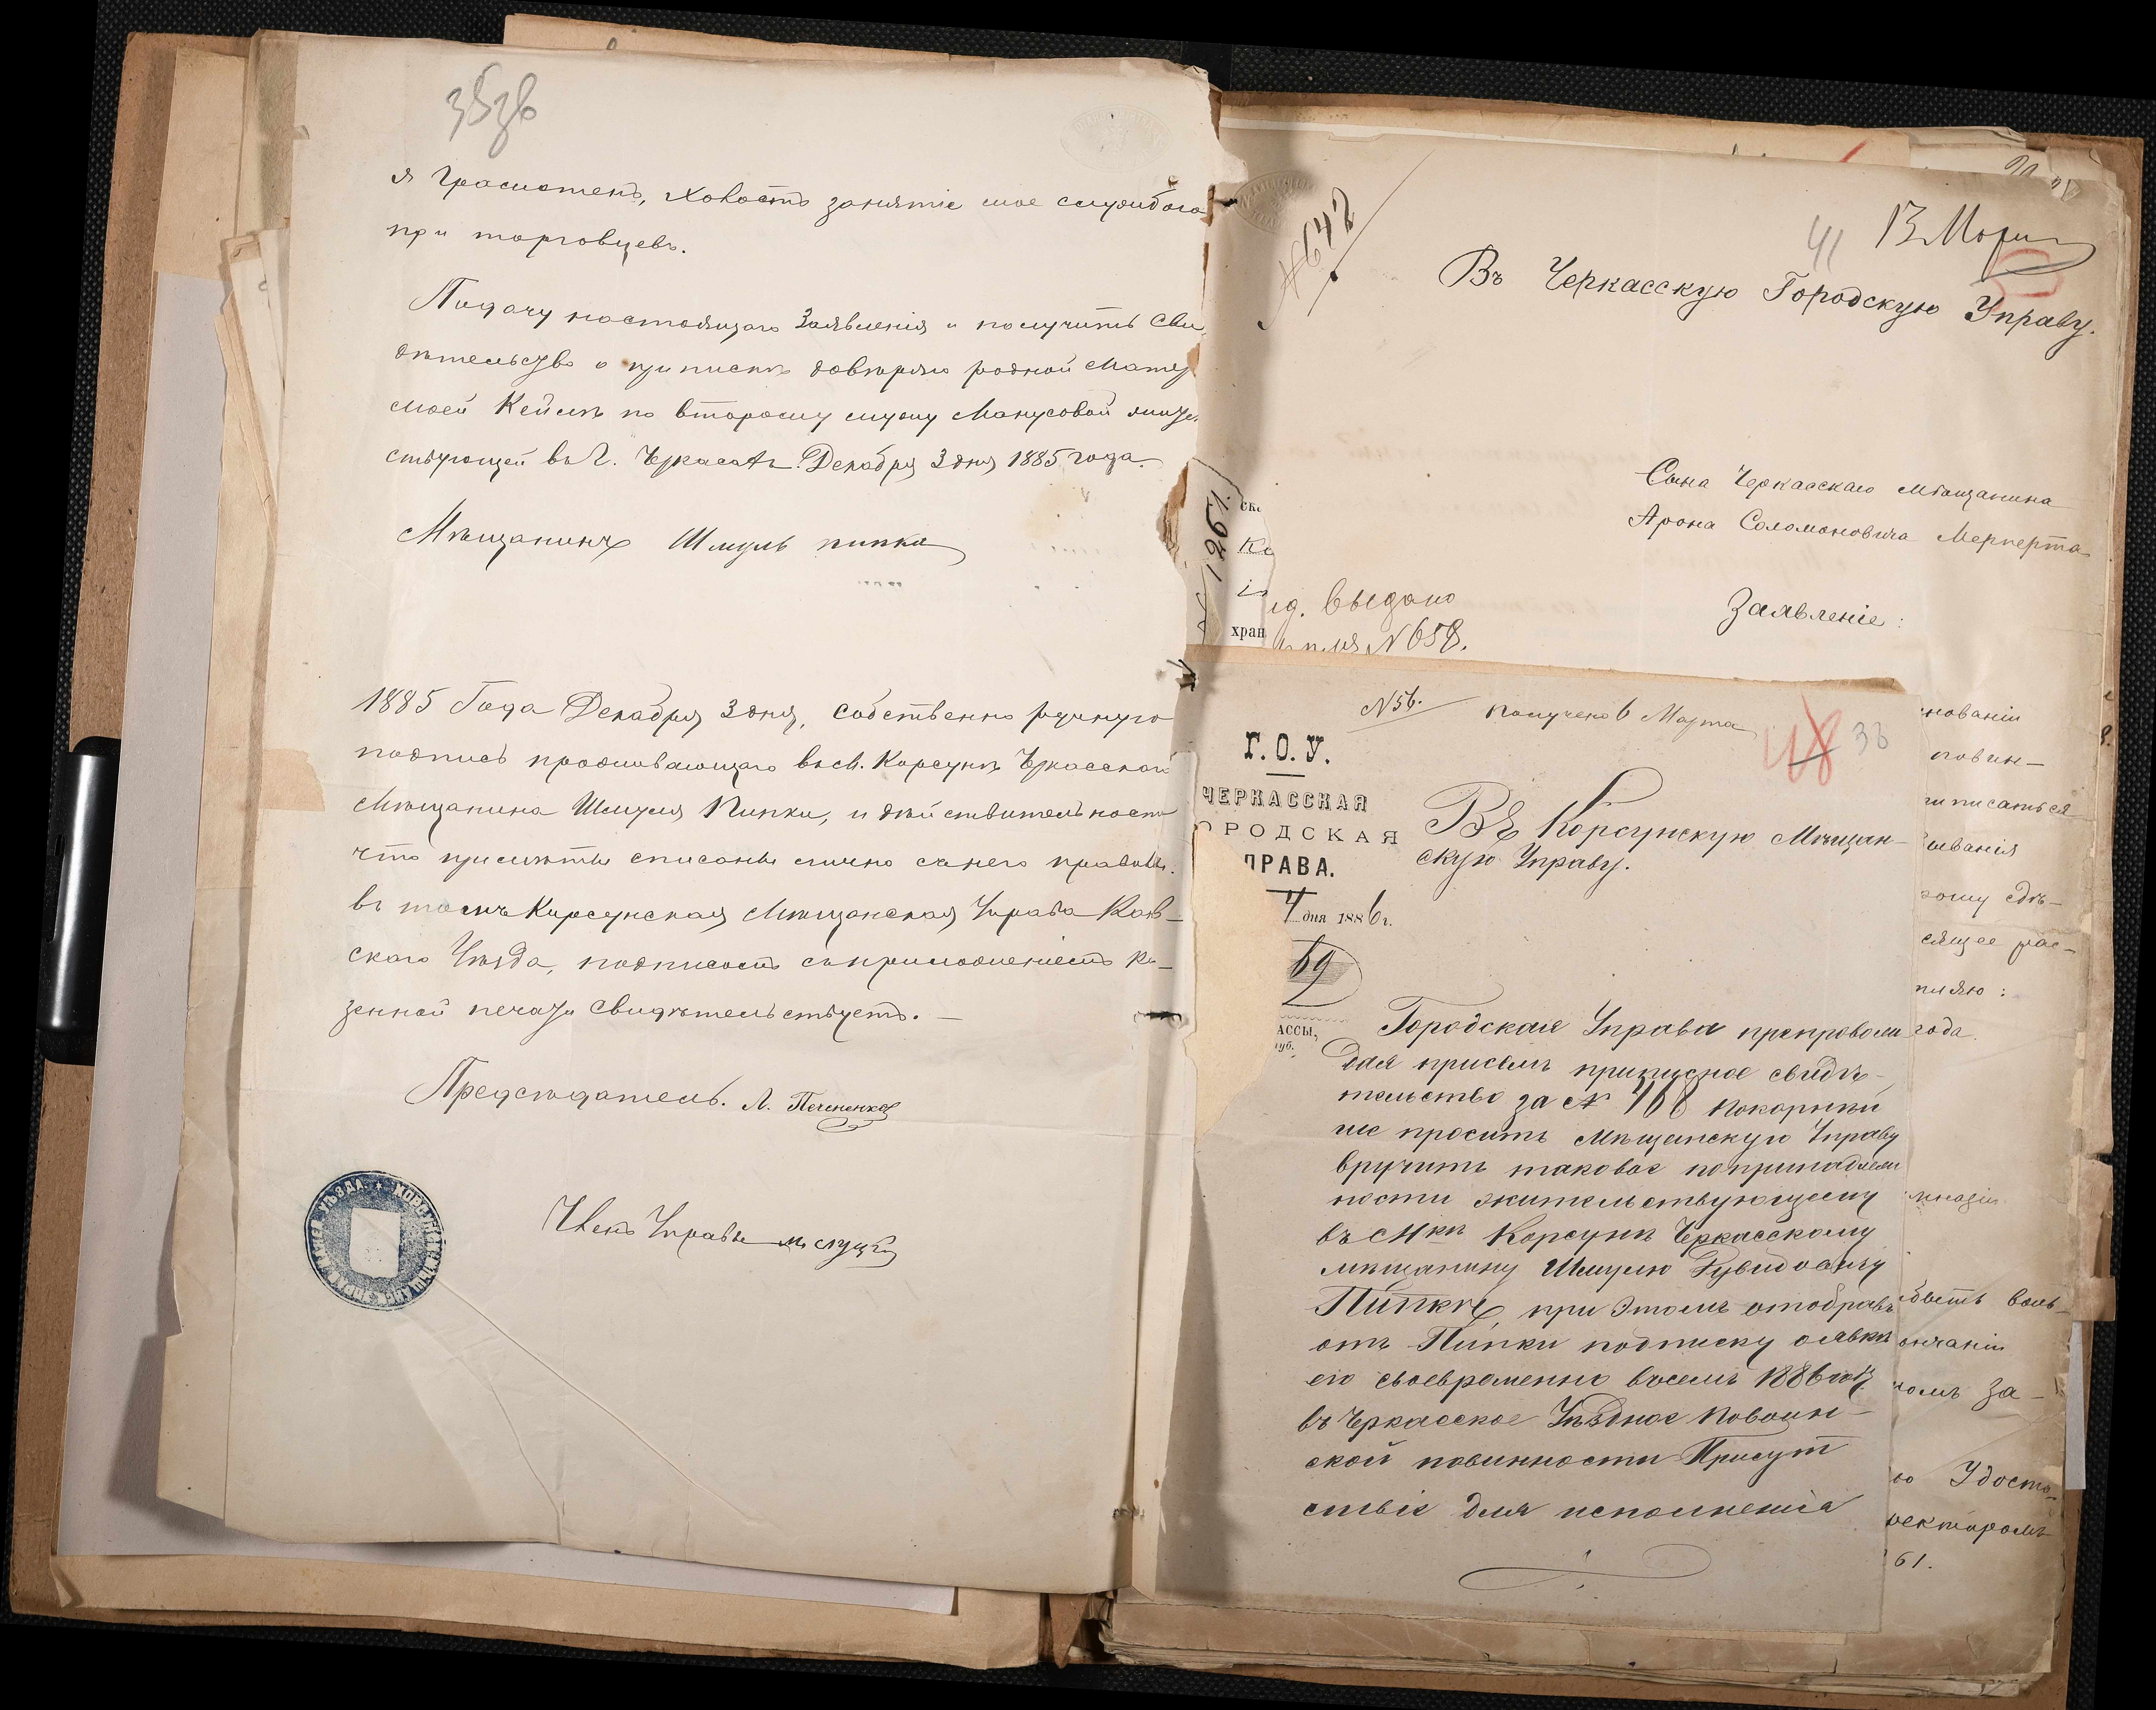 я Грамотенъ, Холостъ занятіе мое служба
при торговцевъ.
Подачу настоящаго Заявленія и получить Сви
дѣтельство о припискѣ довѣряю родной Матер
моей Кейлѣ по второму мужу Манусовой жите
ствующей въ Г. Черкасахъ. Декабря 3 дня 1885 года.
Мѣщанинъ Шмуль пипка
1885 Года Декабря 3 дня, собственно ручную
подпись проживающаго въ м. Корсунѣ Черкасскаго
Мѣщанина Шмуля Пипки, и дѣйствительность
что примѣты списаны лично съ него правильн.
въ томъ Корсунская Мѣщанская Управа Канев-
скаго Уѣзда, подписомъ съ приложеніемъ Ка-
зенной печати свидѣтельствуетъ. —
Предсѣдатель. Л.
Членъ Управы М слуцкій
№ 642
41 13 Мар
Въ Черкасскую Городскую Управу.
Сына Черкасскаго мѣщанина
Арона Соломоновича Мерперта
Заявленіе:
1291
хран
выдано
№ 658.
№ 56. получено 6 Марта
48 38
Г. О. У.
ЧЕРКАССКАЯ
ОРОДСКАЯ
ПРАВА.
4 дня 1886 г.
69
АССЫ,
Въ Корсунскую Мѣщан-
скую Управу.
Городская Управа препровож-
дая присемъ приписное свидѣ-
тельство за № 768 покорнѣй
ше проситъ Мѣщанскую Управу
вручить таковое попринадлеж
ности жительствующему
въ м-кѣ Корсунѣ Черкасскому
мѣщанину Шмулю Рувидовичу
Пипкѣ, при этомъ отобравъ
отъ Пипки подписку о явкѣ
его своевременно въ семъ 1886 году
въ Черкасское Уѣздное Повоин-
ской повинности Присут
ствіе для исполненія
нованіи
повин-
риписаться
сящее рас-
года.
За-
Удосто-
61.